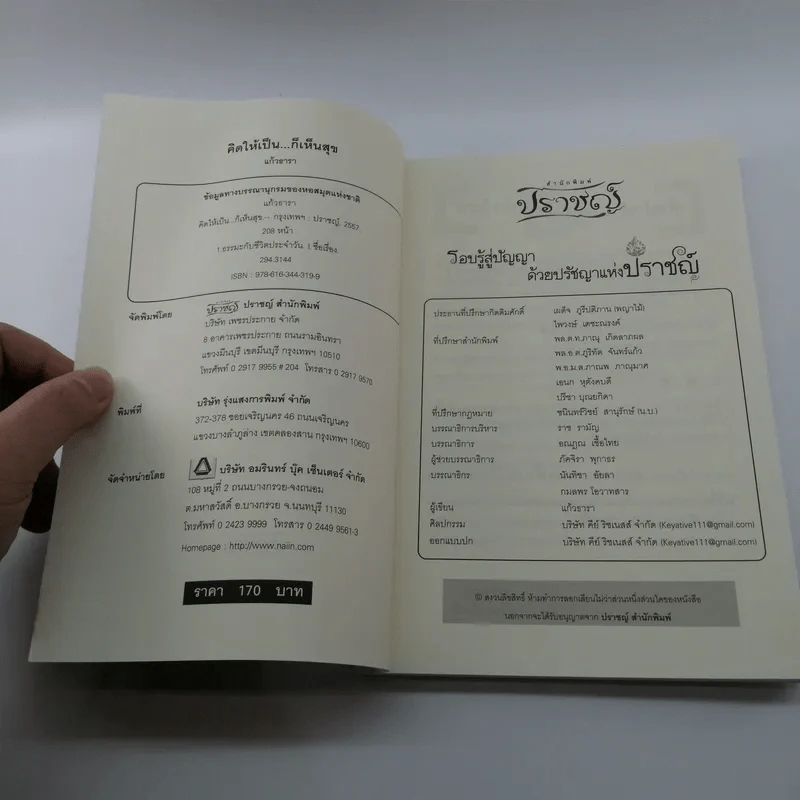 คิดให้เป็น...ก็เห็นสุข
แก้วธารา
ข้อมูลทางบรรณานุกรมของหอสมุดแห่งชาติ
แก้วธารา
คิดให้เป็น...ก็เห็นสุข.-- กรุงเทพฯ : ปราชญ์, 2557.
208 หน้า
1.ธรรมะกับชีวิตประจำวัน. I. ชื่อเรื่อง.
294.3144
ISBN : 978-616-344-319-9
จัดพิมพ์โดย
ปราชญ์ ปราชญ์ สำนักพิมพ์
บริษัท เพชรประกาย จำกัด
8 อาคารเพชรประกาย ถนนรามอินทรา
แขวงมีนบุรี เขตมีนบุรี กรุงเทพฯ 10510
โทรศัพท์ 0 2917 9955 # 204 โทรสาร 0 2917 9570
พิมพ์ที่
บริษัท รุ่งแสงการพิมพ์ จำกัด
372-378 ซอยเจริญนคร 46 ถนนเจริญนคร
แขวงบางลำภูล่าง เขตคลองสาน กรุงเทพฯ 10600
จัดจำหน่ายโดย
บริษัท อมรินทร์ บุ๊ค เซ็นเตอร์ จำกัด
108 หมู่ที่ 2 ถนนบางกรวย-จงถนอม
ต.มหาสวัสดิ์ อ.บางกรวย จ.นนทบุรี 11130
โทรศัพท์ 0 2423 9999 โทรสาร 0 2449 9561-3
Homepage : http://www.naiin.com
ราคา 170 บาท
สำนักพิมพ์
ปราชญ์
รอบรู้สู่ปัญญา
ด้วยปรัชญาแห่งปราชญ์
ประธานที่ปรึกษากิตติมศักดิ์ เผด็จ ภูรีปติภาน (พญาไม้)
ไพวงษ์ เตชะณรงค์
ที่ปรึกษาสำนักพิมพ์ พล.ต.ท.ภาณุ เกิดลาภผล
พล.อ.ต.ภูริทัต จันทร์แก้ว
พ.อ.ม.ล.ภาณพ ภาณุมาศ
เอนก หุตังคบดี
ปรีชา บุณยกิดา
ที่ปรึกษากฎหมาย ชนินทร์วิชย์ สานุรักษ์ (น.บ.)
บรรณาธิการบริหาร ราช รามัญ
บรรณาธิการ อณฎณ เชื้อไทย
ผู้ช่วยบรรณาธิการ ภัคจิรา พุกาธร
บรรณาธิกร นันทิชา อัยลา
กมลพร โอวาทสาร
ผู้เขียน แก้วธารา
ศิลปกรรม บริษัท คีย์ ริชเนสส์ จำกัด (Keyative111@gmail.com)
ออกแบบปก บริษัท คีย์ ริชเนสส์ จำกัด (Keyative111@gmail.com)
© สงวนลิขสิทธิ์ ห้ามทำการลอกเลียนไม่ว่าส่วนหนึ่งส่วนใดของหนังสือ
นอกจากจะได้รับอนุญาตจาก ปราชญ์ สำนักพิมพ์